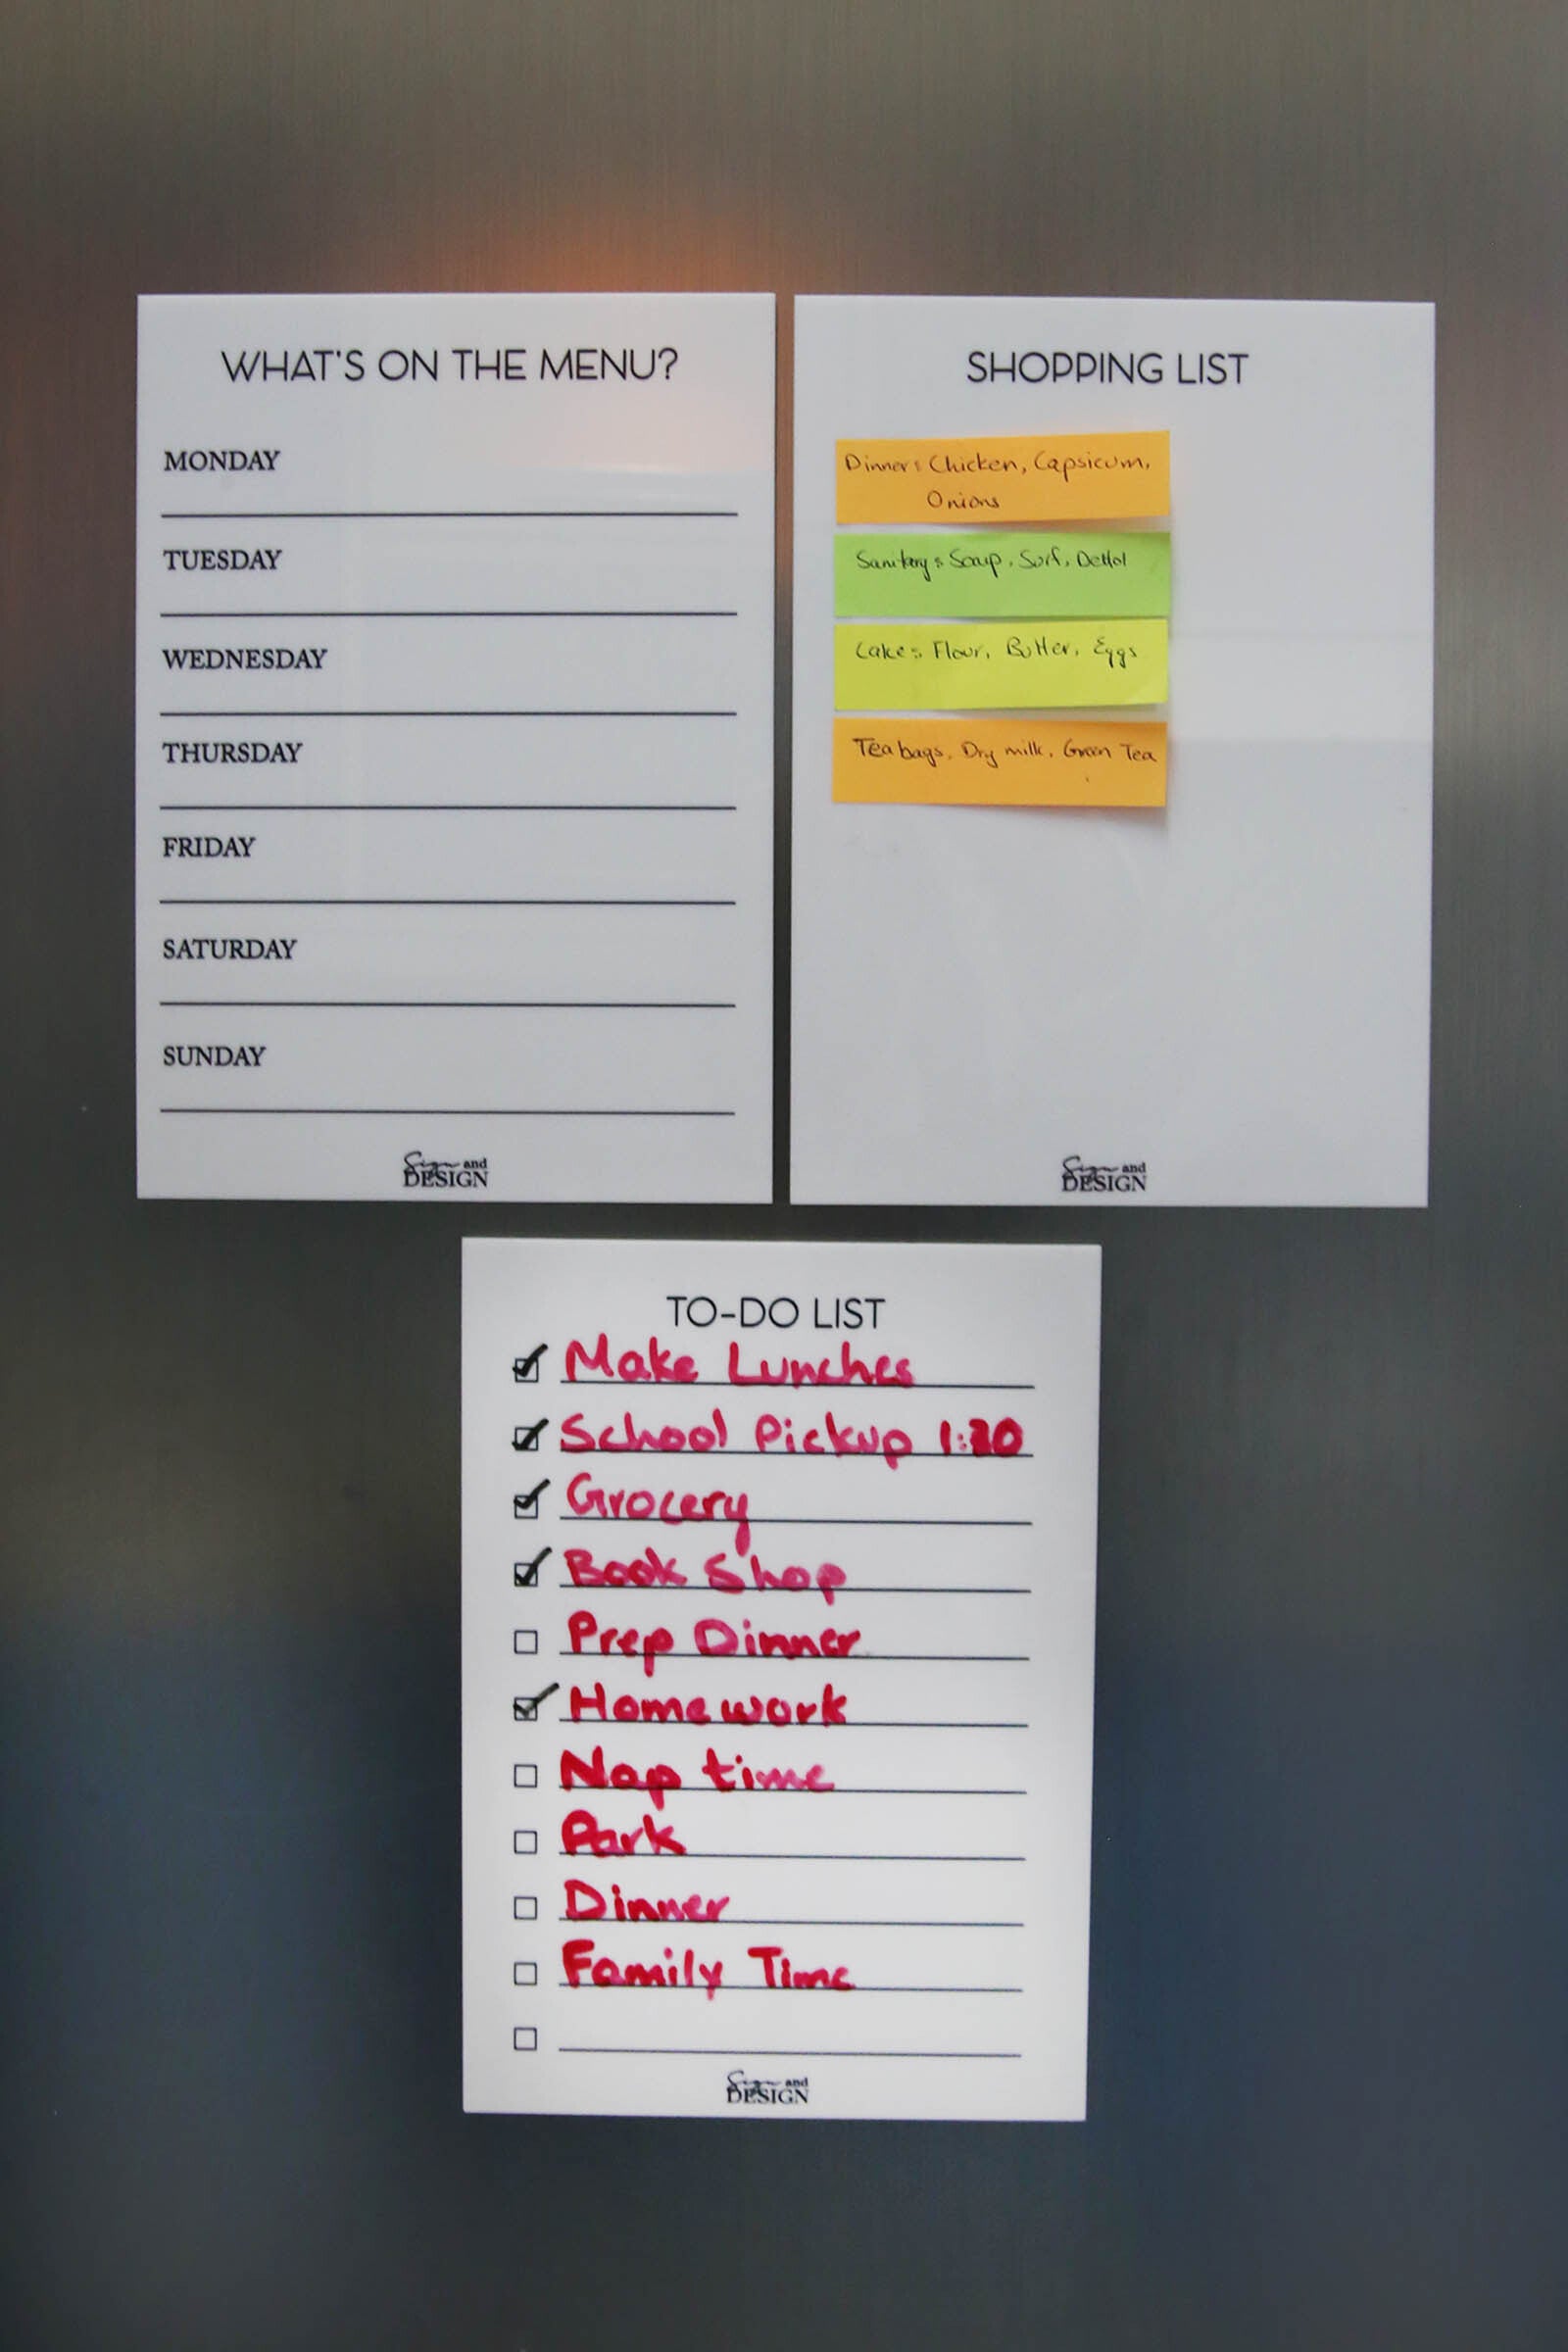 WHAT'S ON THE MENU?
MONDAY
TUESDAY
WEDNESDAY
THURSDAY
FRIDAY
SATURDAY
SUNDAY
Sign and
DESIGN
SHOPPING LIST
Dinner: Chicken, Capsicum,
Onions
Sanitary: Soap, Surf, Dettol
Cake: Flour, Butter, Eggs
Tea bags, Dry milk, Green Tea
Sign and
DESIGN
TO-DO LIST
Make Lunches
School Pickup
Grocery
Book Shop
Prep Dinner
Homework
Nap time
Park
Dinner
Family Time
Sign and
DESIGN